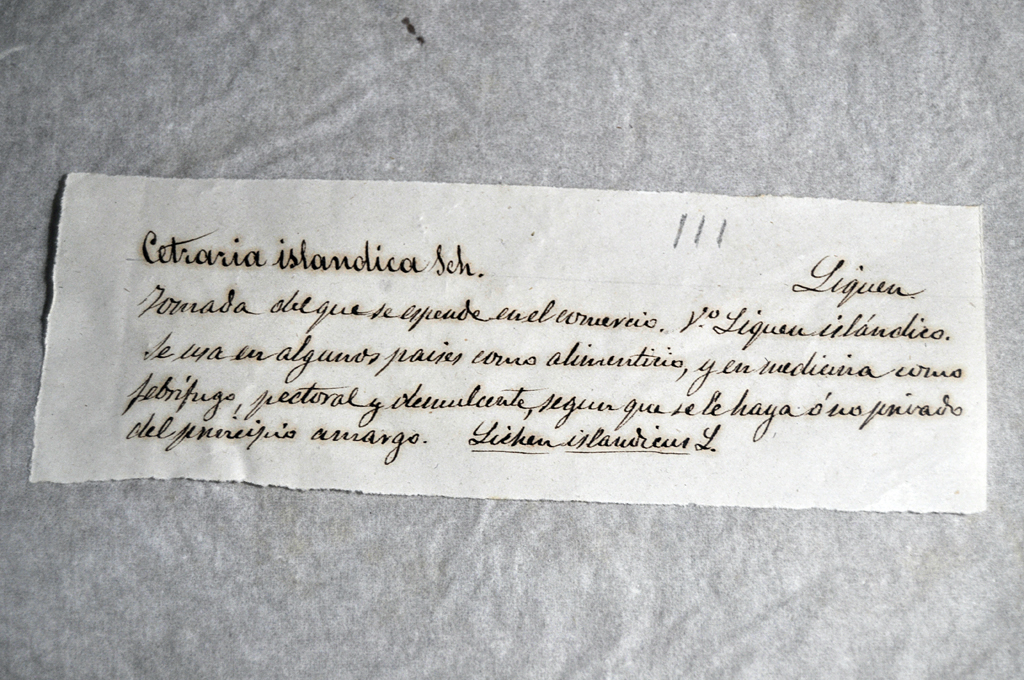 111
Cetraria islandica Sch.
Liquen.
Tomada del que se espende en el comercio. V.º Liquen islándico.
Se usa en algunos paises como alimenticio, y en medicina como
febrífugo, pectoral y demulcente, segun que se le haya ó no privado
del principio amargo. Lichen islandicus L.